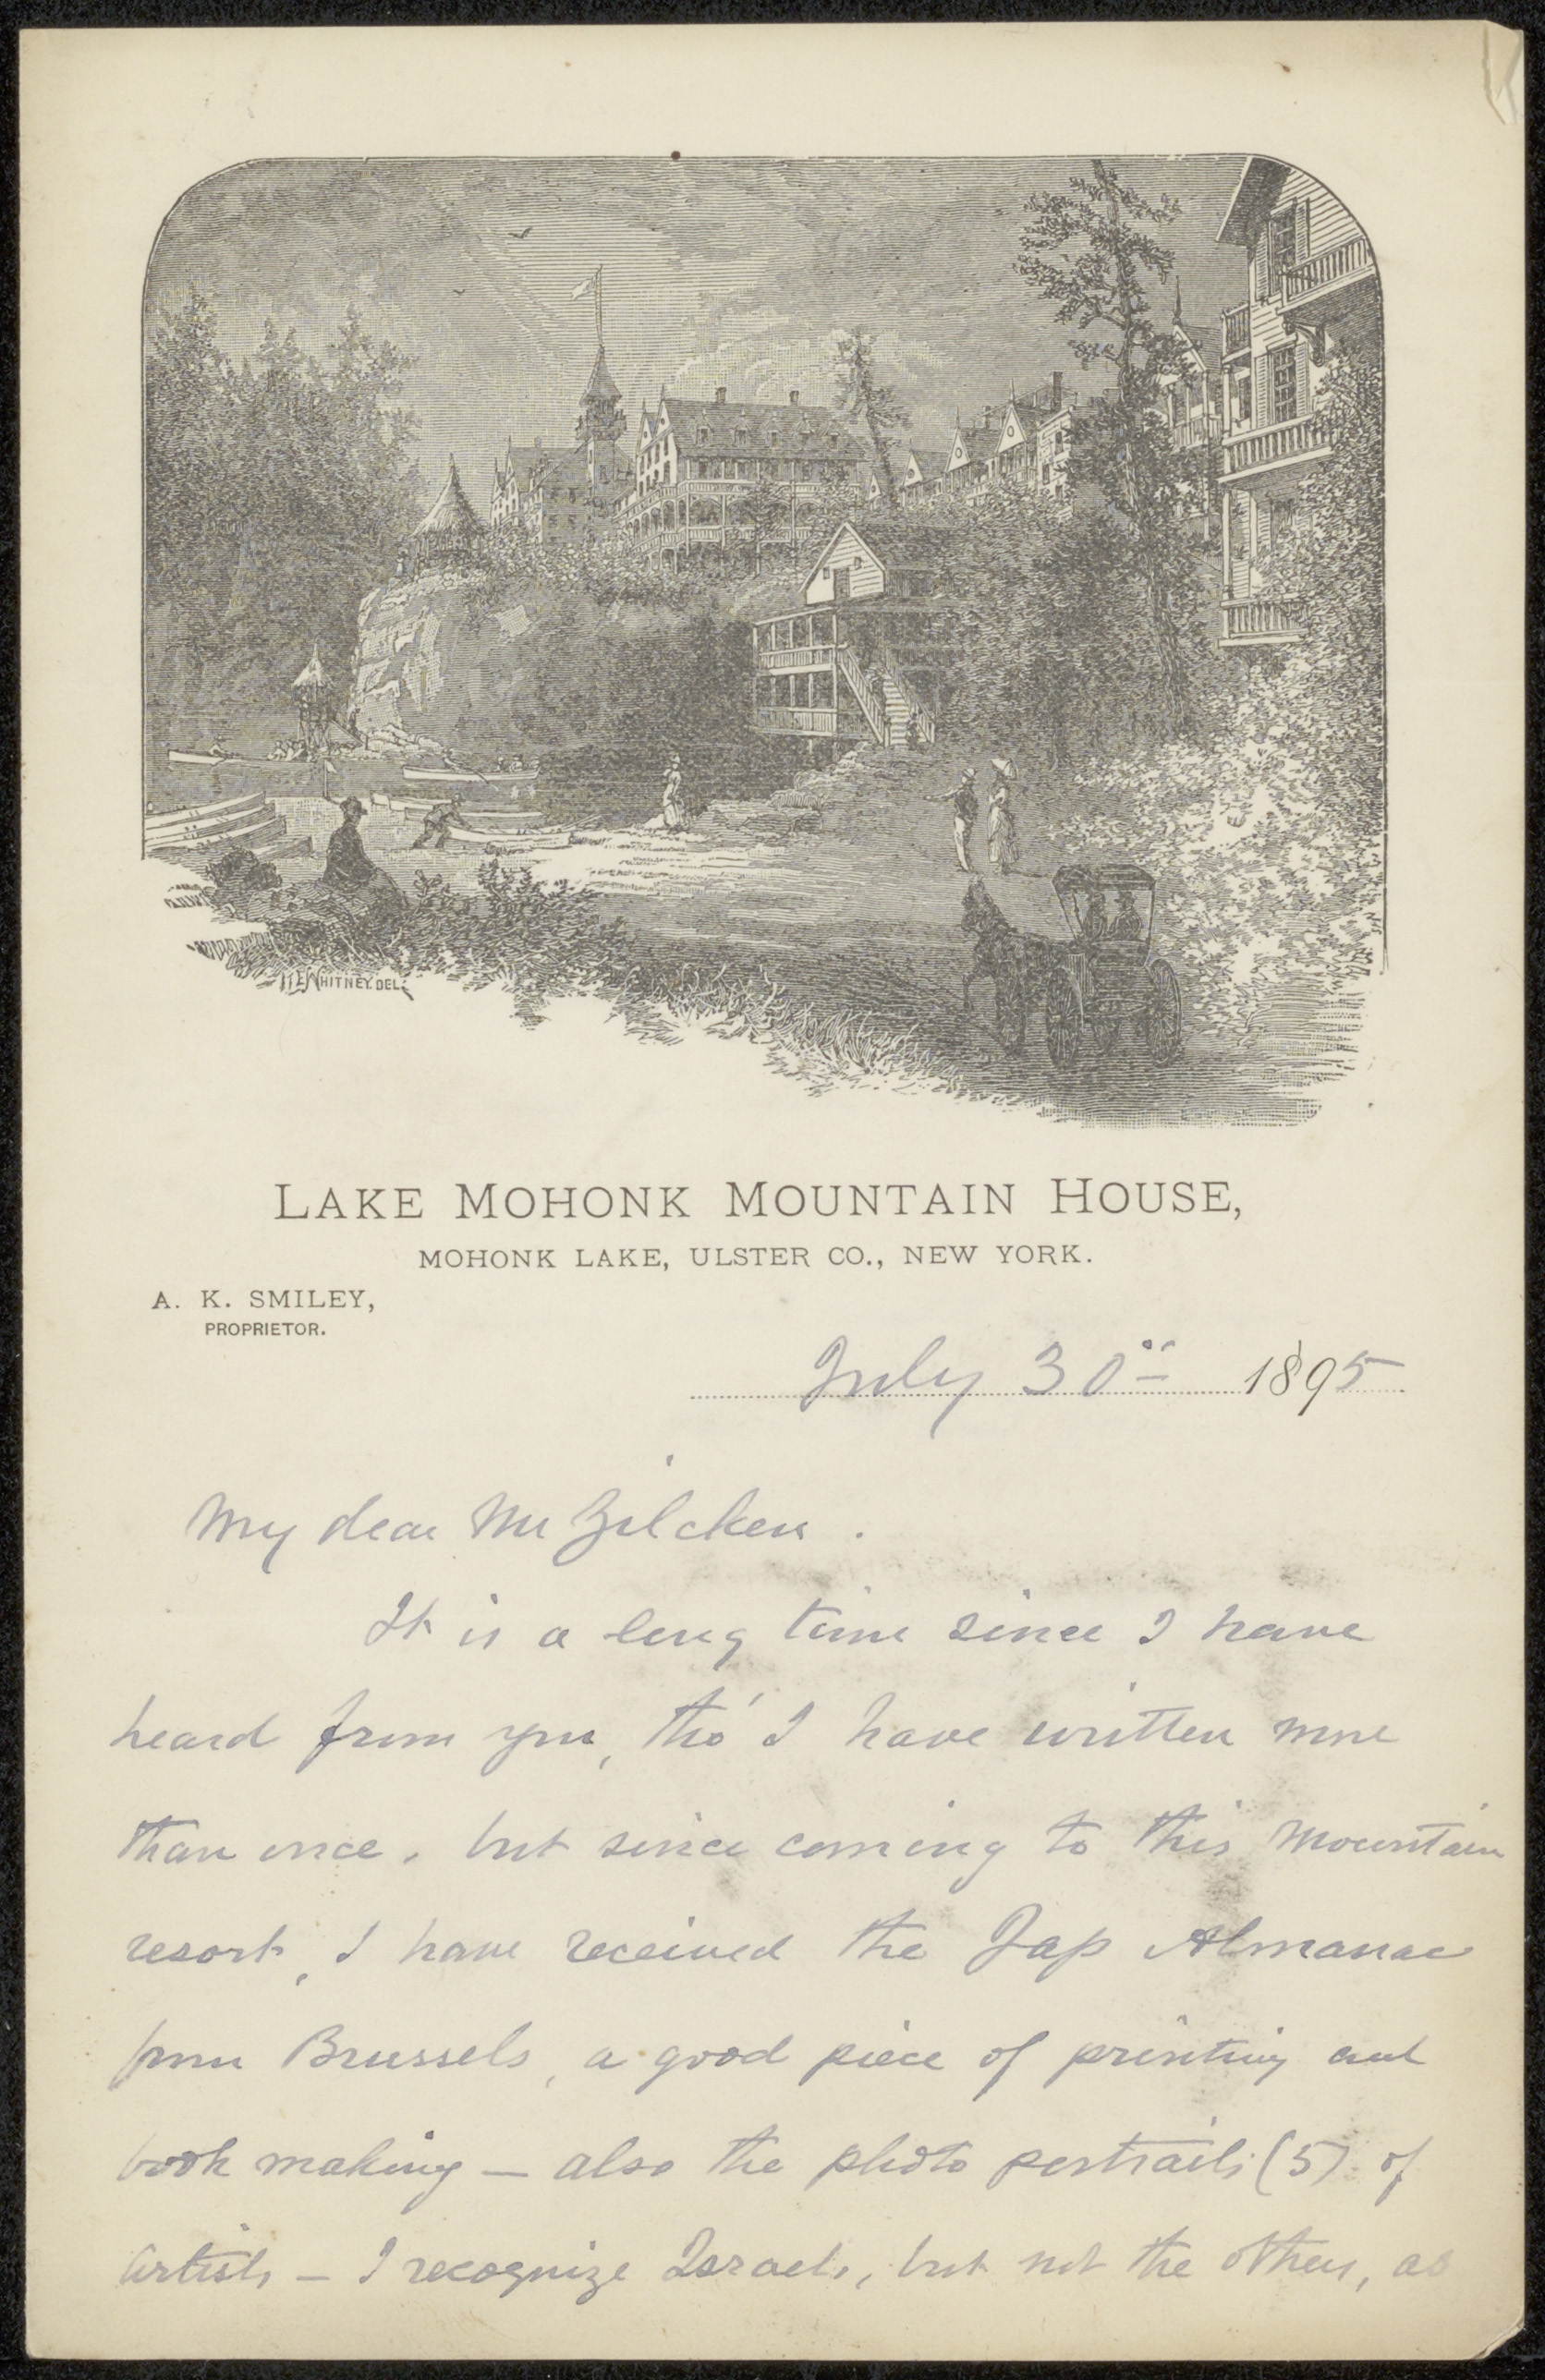 WHITNEY. DEL.
LAKE MOHONK MOUNTAIN HOUSE,
MOHONK LAKE, ULSTER CO., NEW YORK.
A. K. SMILEY,
PROPRIETOR.
July 30th 1895
My dear Mr Zilcken.
It is a long time since I have
heard from you, tho' I have written more
than once, but since coming to this Mountain
resort, I have received the Jap Almanac
from Brussels, a good piece of printing and
book making — also the photo portraits (5) of
artists — I recognize Israels, but not the others, as